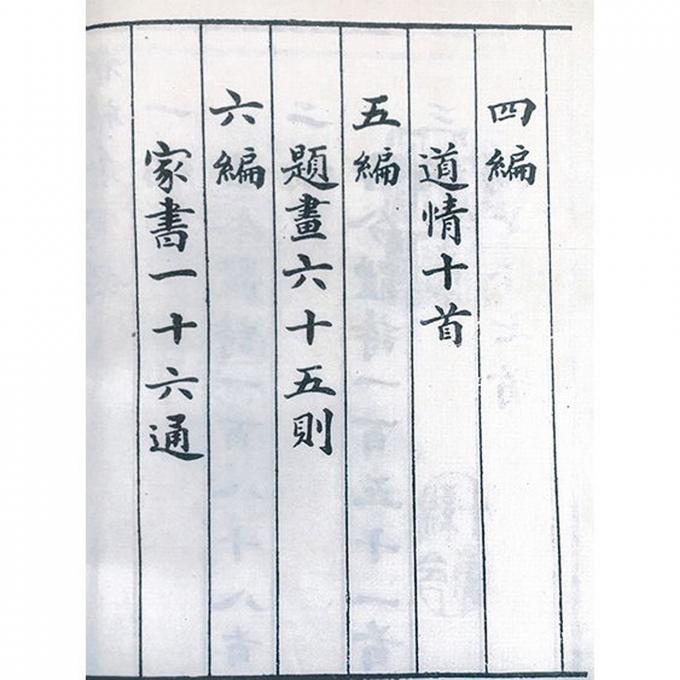 四編
道情十首
五編
題畫六十五則
六編
家書一十六通